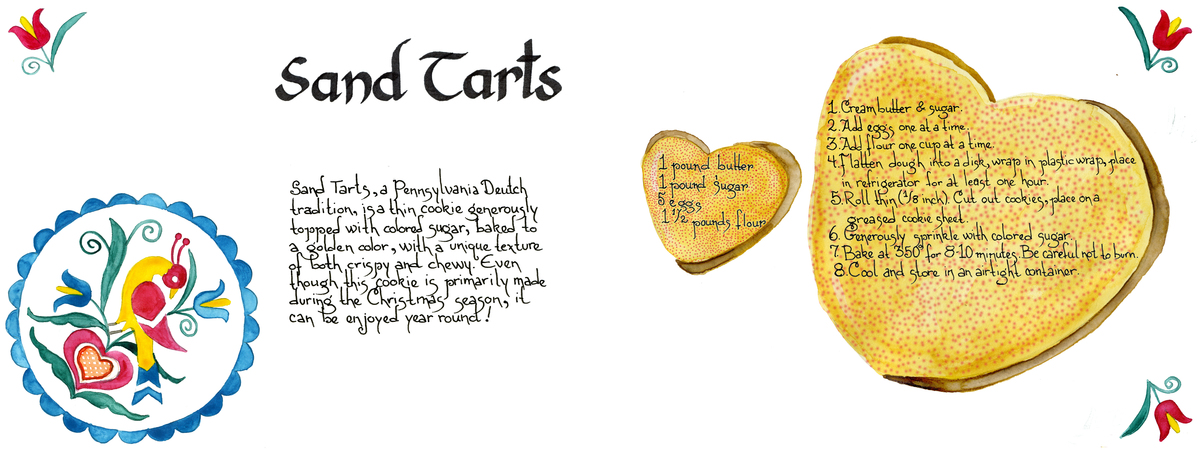 Sand Tarts
Sand Tarts, a Pennsylvania Deutch
tradition, is a thin cookie generously
topped with colored sugar, baked to
a golden color, with a unique texture
of both crispy and chewy. Even
though this cookie is primarily made
during the Christmas season, it
can be enjoyed year round!
1 pound butter
1 pound sugar
5 eggs
1 1/2 pounds flour
1. Cream butter & sugar.
2. Add eggs one at a time.
3. Add flour one cup at a time.
4. Flatten dough into a disk, wrap in plastic wrap, place
in refrigerator for at least one hour.
5. Roll thin (1/8 inch). Cut out cookies, place on a
greased cookie sheet.
6. Generously sprinkle with colored sugar.
7. Bake at 350° for 8-10 minutes. Be careful not to burn.
8. Cool and store in an airtight container.